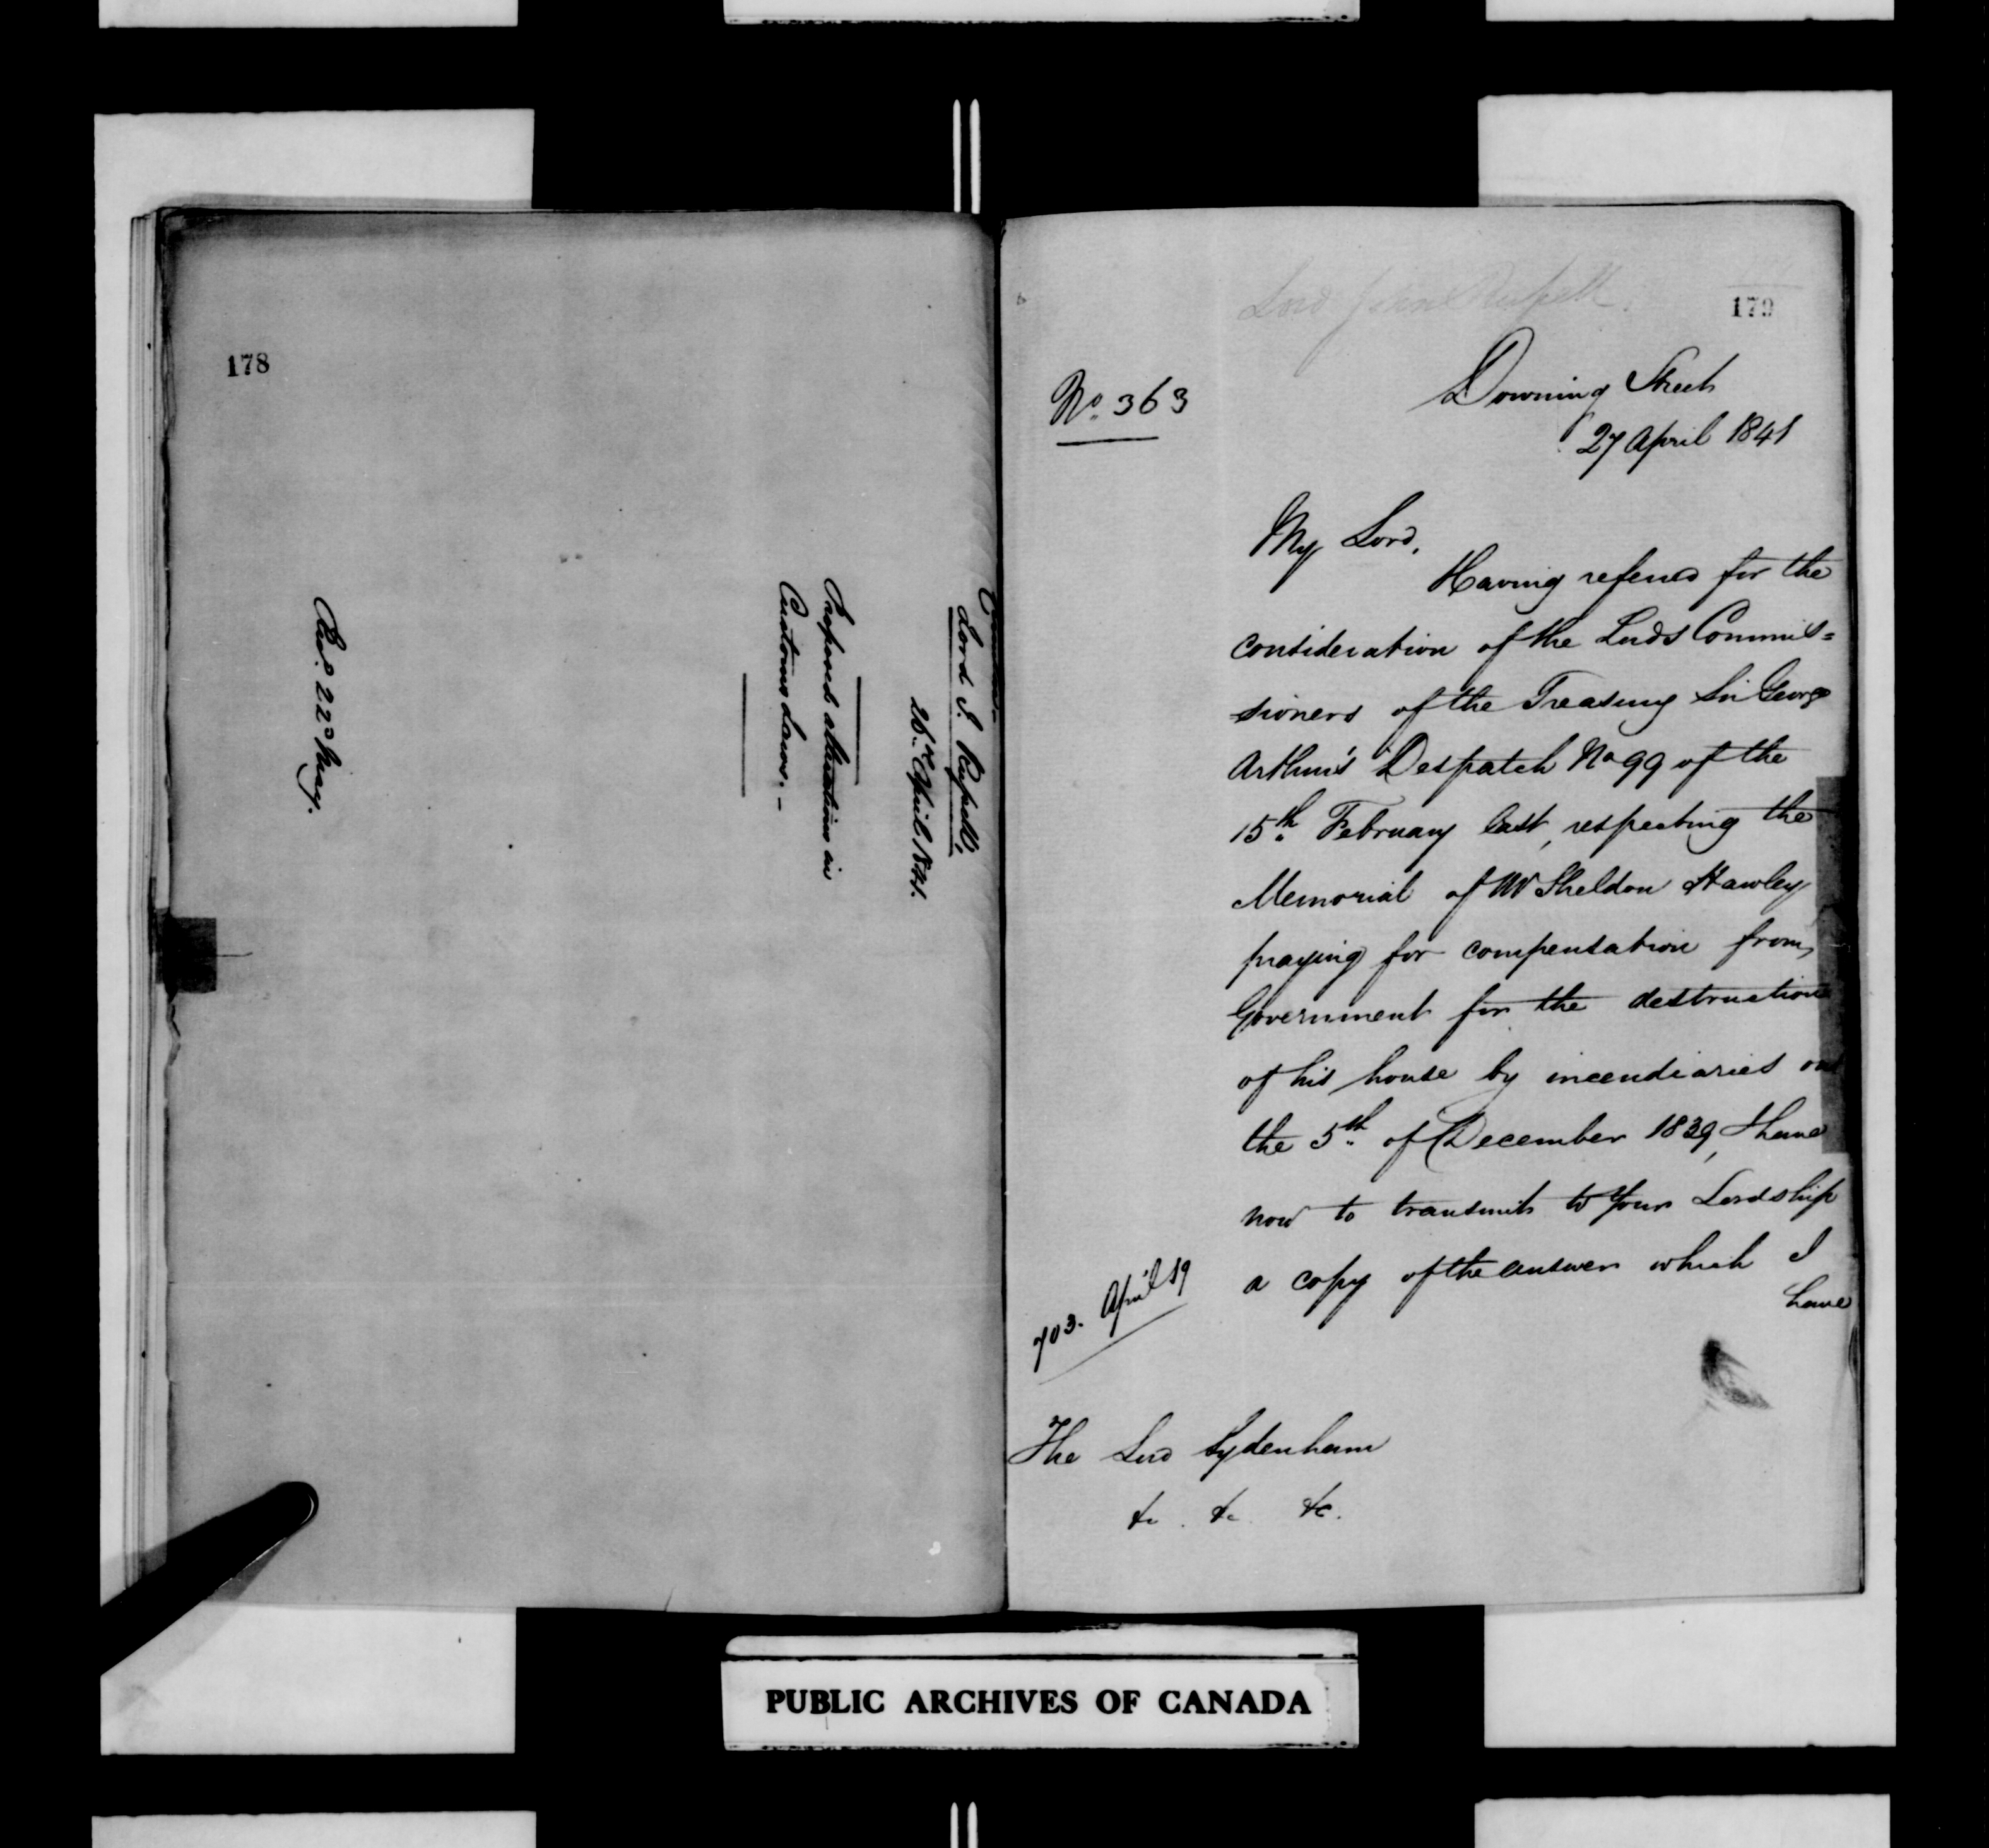 178
Lord J. Russell,
26th April 1841.
Proposed alterations in
Customs Laws.-
Rec.d 22d May.
Lord John Russell.
179
No. 363
Downing Street
27 April 1841
My Lord,
Having referred for the
consideration of the Lords Commis=
sioners of the Treasury Sir George
Arthur's Despatch No 99 of the
15th February last, respecting the
Memorial of Mr Sheldon Hawley
praying for compensation from
Government for the destruction
of his house by incendiaries on
the 5th of December 1839, I have
now to transmit to Your Lordship
a copy of the answer which I
have
703. April 19
The Lord Sydenham
&c. &c. &c.
PUBLIC ARCHIVES OF CANADA